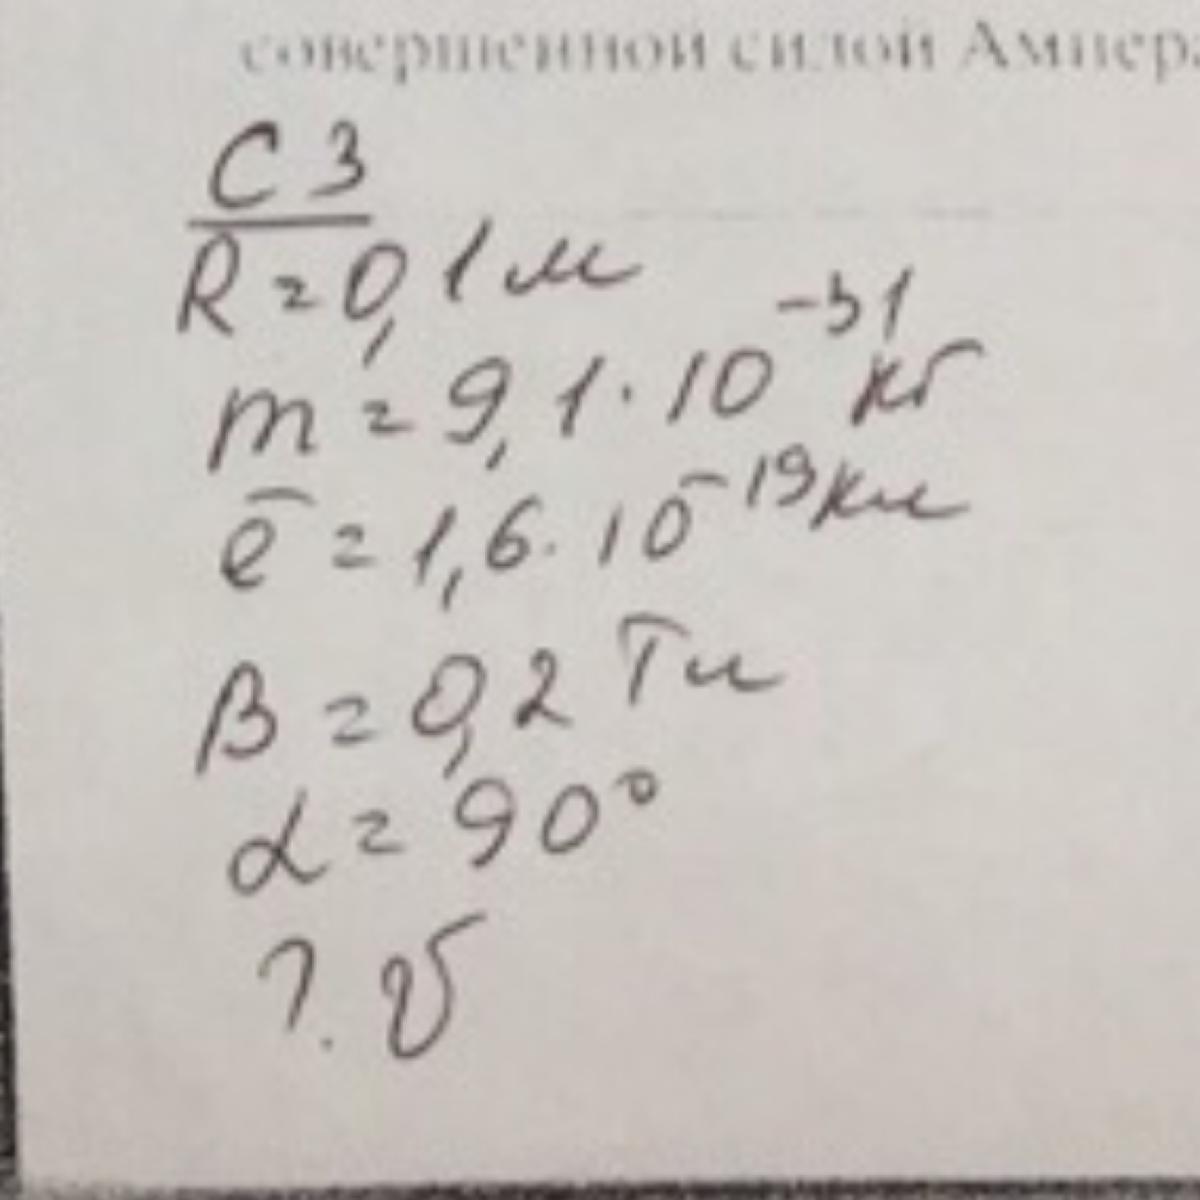 совершенной силой Ампера
С 3
R = 0,1 м
m = 9,1 · 10⁻³¹ кг
e̅ = 1,6 · 10⁻¹⁹ Кл
B = 0,2 Тл
α = 90°
?. υ